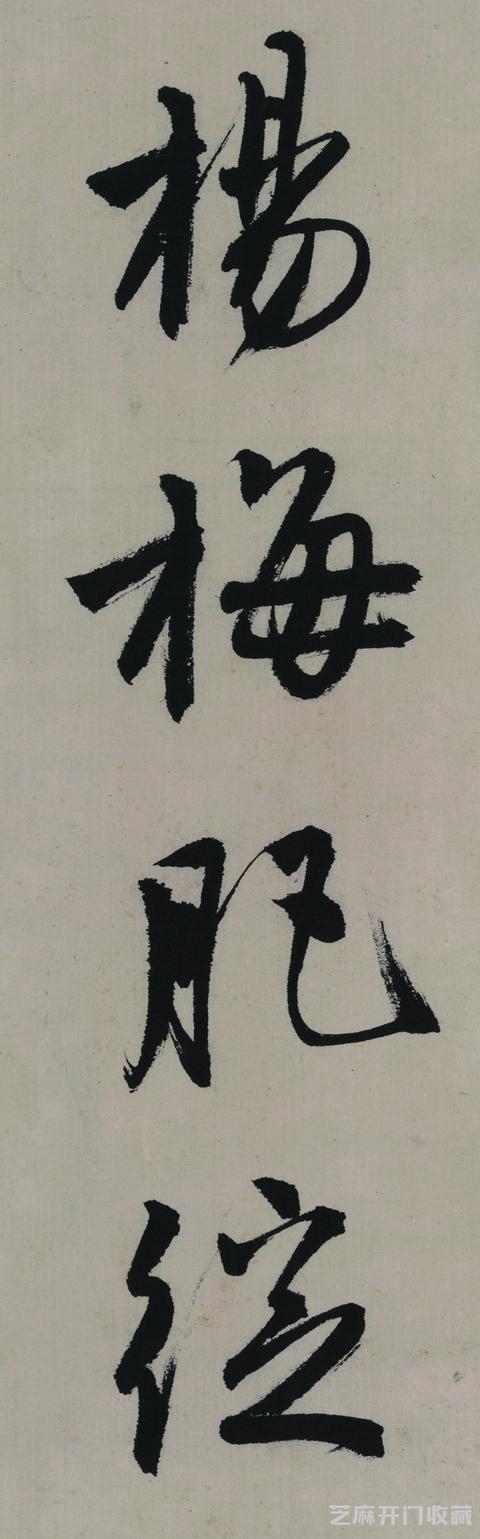 楊梅肥綻
芝麻开门收藏